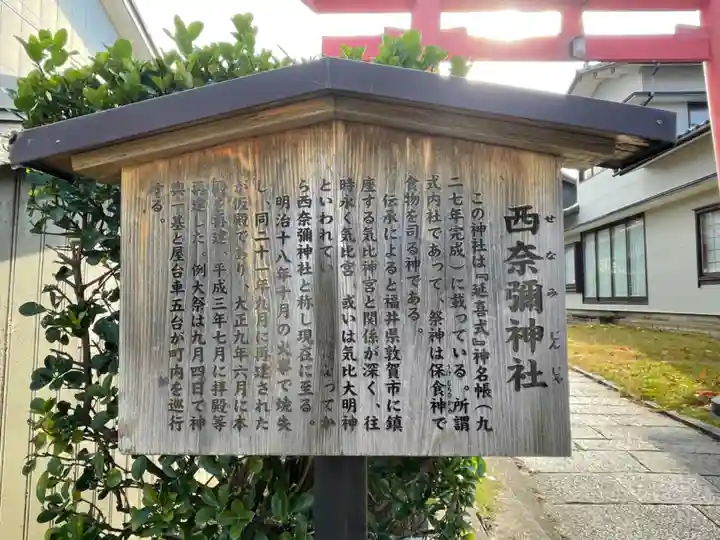 西奈彌神社
せなみじんじゃ
この神社は『延喜式』神名帳（九
二七年完成）に載っている。所謂
式内社であって、祭神は保食神で
食物を司る神である。
伝承によると福井県敦賀市に鎮
座する気比神宮と関係が深く、往
時永く気比宮、或いは気比大明神
といわれてい
なってか
ら西奈彌神社と称し現在に至る。
明治十八年十月の火事で焼失
し、同二十一年九月に再建された
が仮殿であり、大正九年六月に本
殿を再建、平成三年七月に拝殿等
再建した。例大祭は九月四日で神
輿一基と屋台車五台が町内を巡行
する。